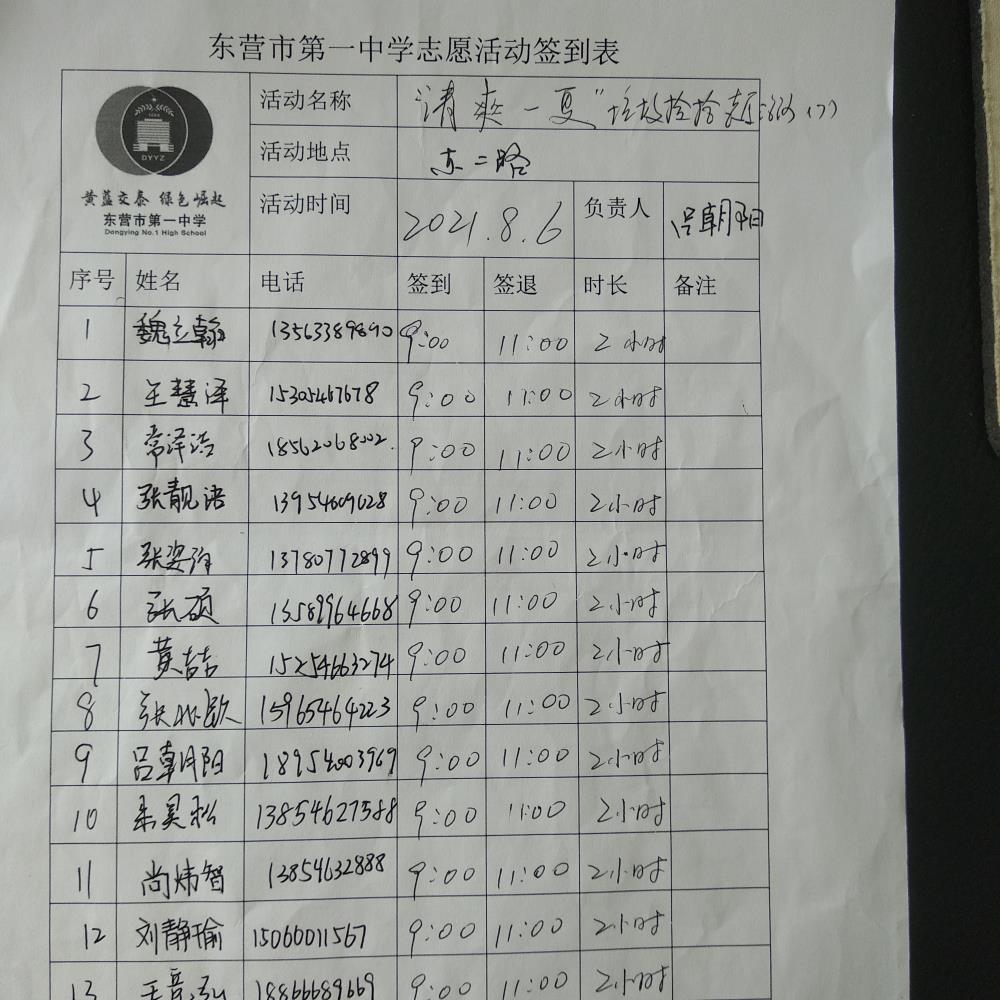 东营市第一中学志愿活动签到表
DYYZ
黄蓝交泰 绿色崛起
东营市第一中学
Dongying No.1 High School
活动名称 "清爽一夏"垃圾捡拾志愿活动(7)
活动地点 东二路
活动时间 2021.8.6 负责人 吕朝阳
序号 姓名 电话 签到 签退 时长 备注
1 魏立翰 13563389890 9:00 11:00 2小时
2 王慧泽 15305467678 9:00 11:00 2小时
3 常泽浩 18562068002 9:00 11:00 2小时
4 张靓语 13954609628 9:00 11:00 2小时
5 张姿洵 13780772899 9:00 11:00 2小时
6 张硕 13589964668 9:00 11:00 2小时
7 黄喆 15254663274 9:00 11:00 2小时
8 张兆欧 15965464223 9:00 11:00 2小时
9 吕朝阳 18954003969 9:00 11:00 2小时
10 昊松 13854627588 9:00 11:00 2小时
11 尚炜智 13854632888 9:00 11:00 2小时
12 刘静瑜 15060011567 9:00 11:00 2小时
13 王 18866689669 9:00 11:00 2小时